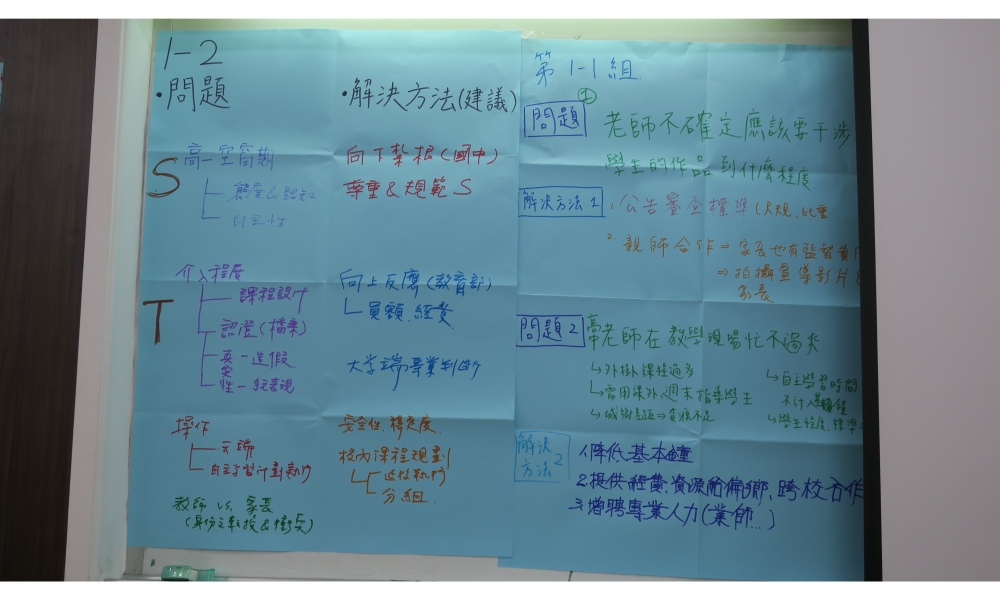 1-2
·問題
·解決方法(建議)
S
高一空窗期
態度&認知
自主性
向下紮根(國中)
尊重&規範S
T
介入程度
課程設計
認證(檔案)
真實性
造假
向上反應(教育部)
員額、經費
大学端專業判斷
操作
雲端
自主學習計劃執行
安全性、穩定度
校內課程規劃
分組
教師 vs. 家長
第1-1組
①
問題
老師不確定應該要干涉
學生的作品到什麼程度
解決方法1
1.公告審查標準
2.親師合作⇒家長也有監督責
⇒拍攝宣導影片
家長
問題2
老師在教學現場忙不過來
↳外掛課程過多
↳需用課外週末指導學生
↳城鄉差距⇒資源不足
↳自主學習時間
不計入鐘點
↳學生程度、標準
解決方法2
1.降低基本鐘
2.提供經費、資源給偏鄉、跨校合作
3.增聘專業人力(業師...)